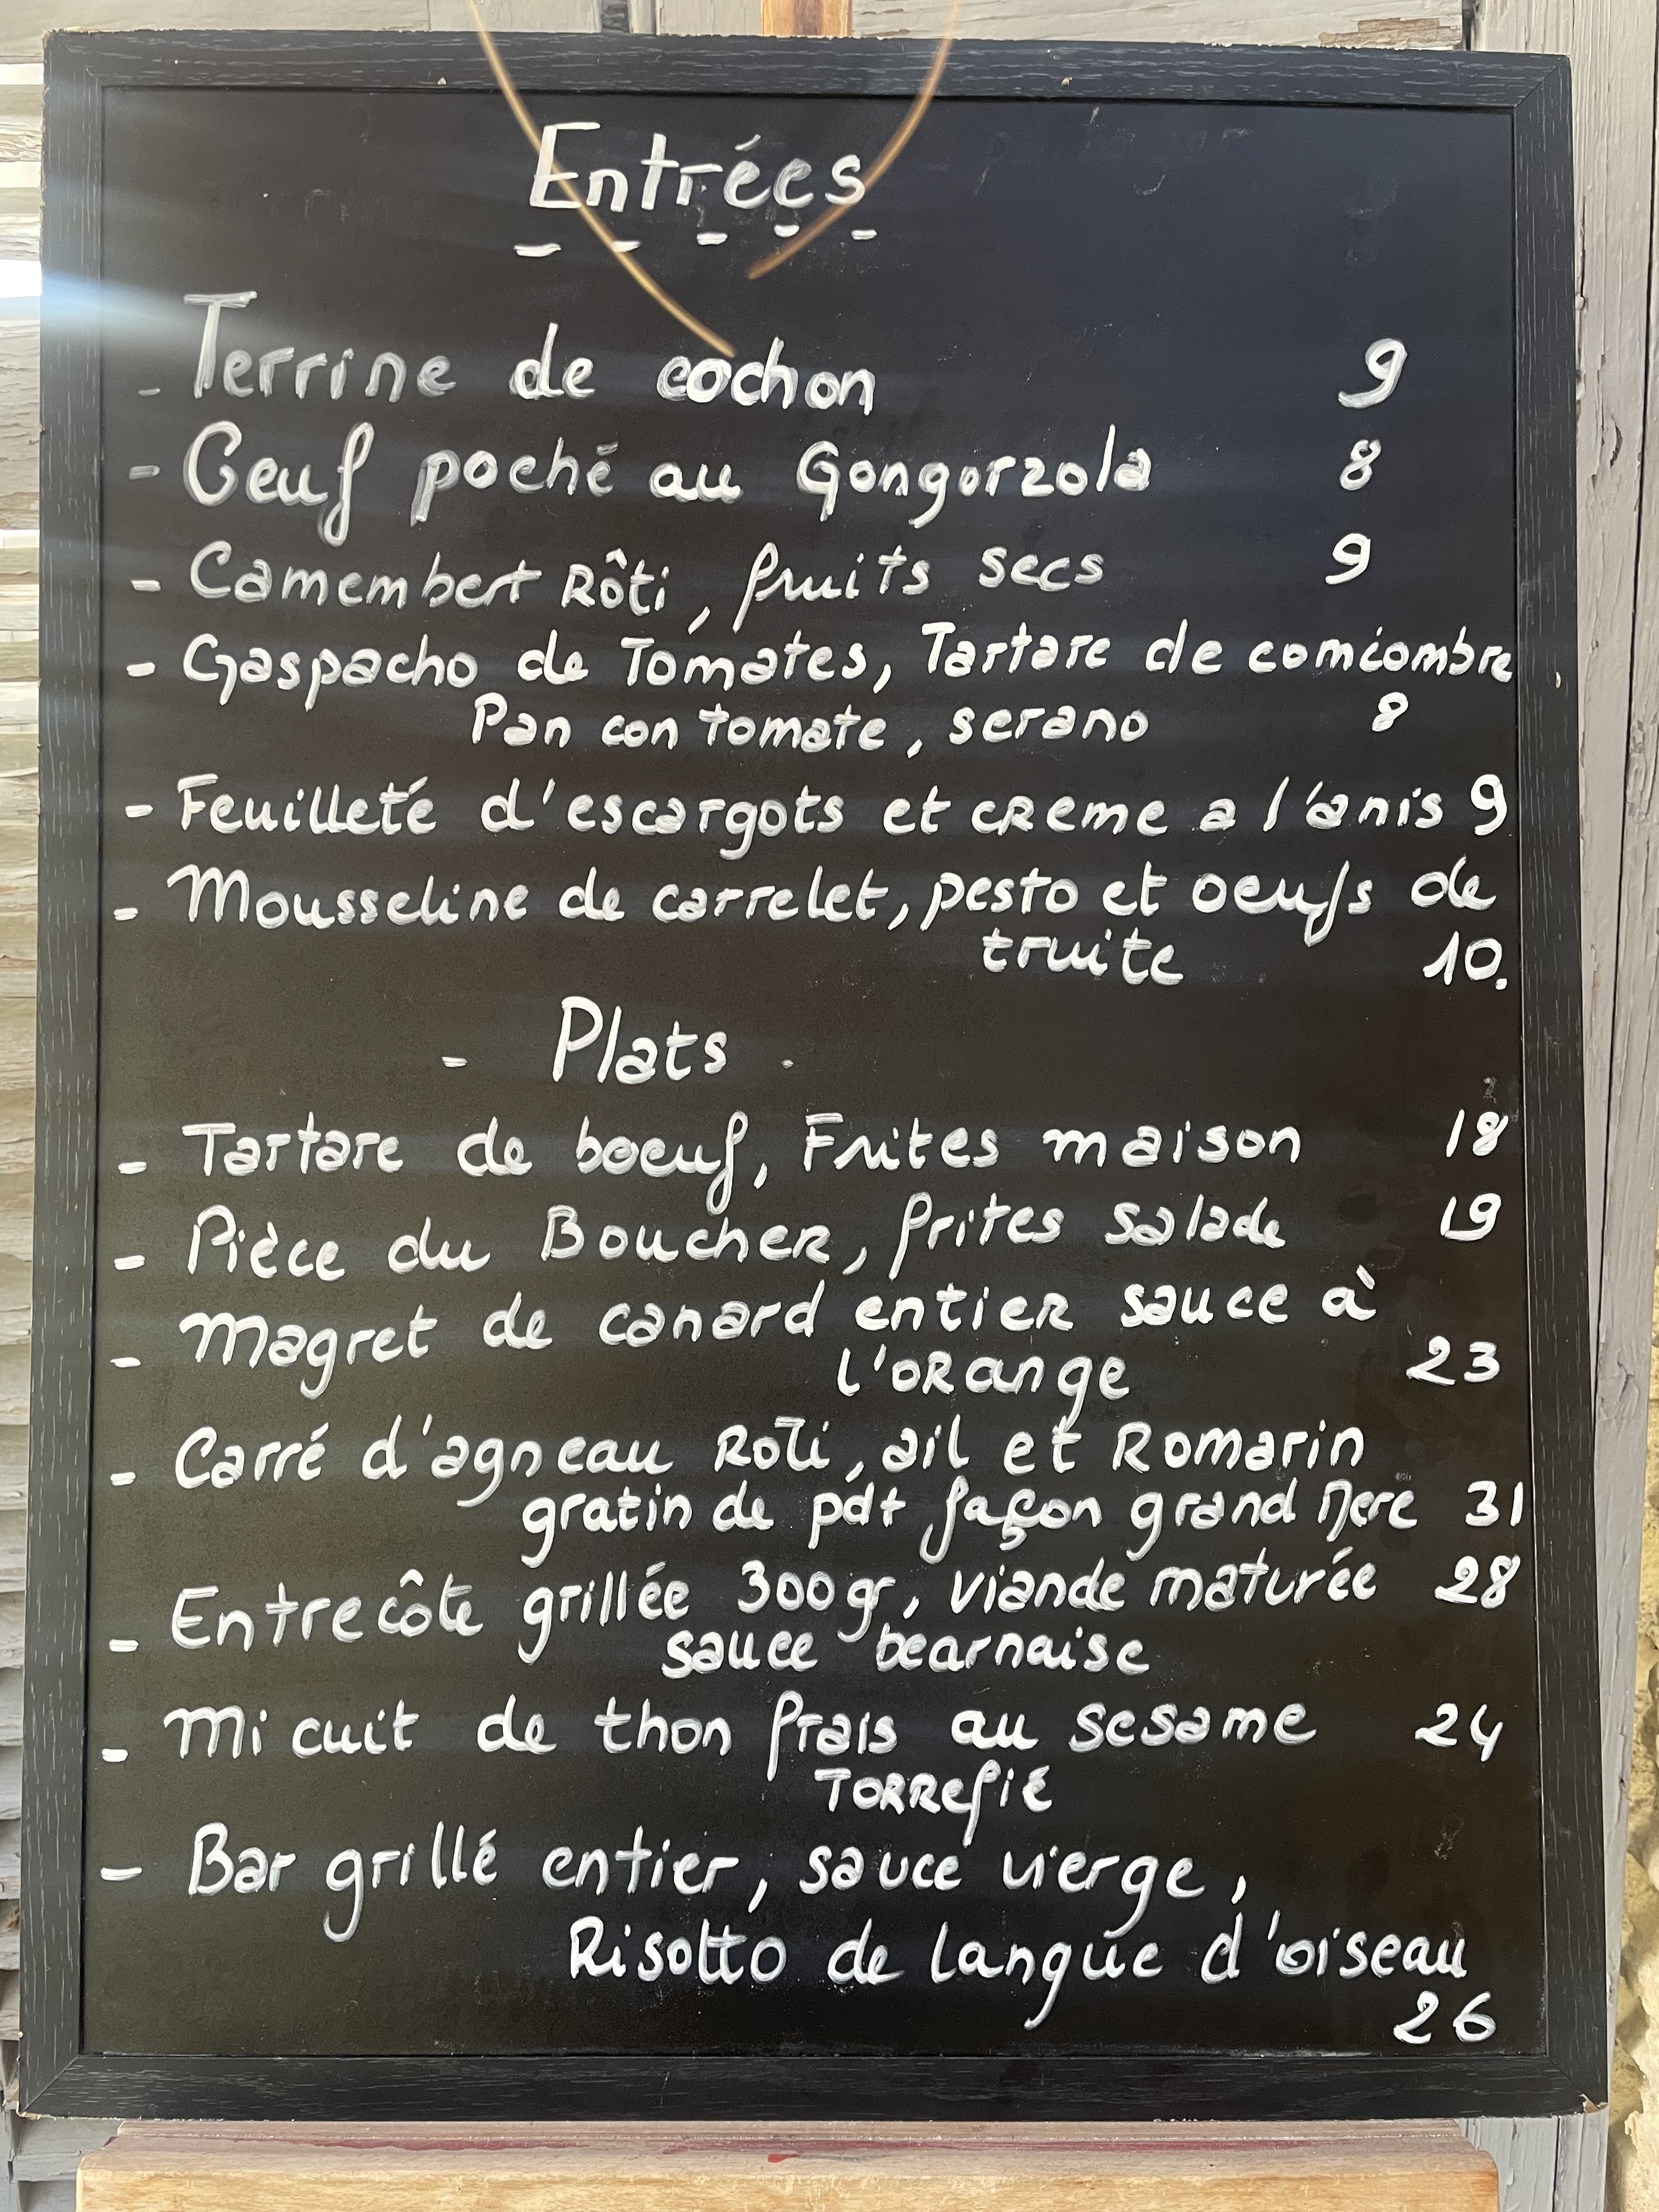 Entrées
- Terrine de cochon 9
- Oeuf poché au Gongorzola 8
- Camembert Rôti, fruits secs 9
- Gaspacho de Tomates, Tartare de comcombre
Pan con tomate, serano 8
- Feuilleté d'escargots et creme a l'anis 9
- Mousseline de carrelet, pesto et oeufs de
truite 10.
- Plats -
- Tartare de boeuf, Frites maison 18
- Pièce du Boucher, frites salade 19
- Magret de canard entier sauce à
l'orange 23
- Carré d'agneau Rôti, ail et Romarin
gratin de pdt façon grand Mere 31
- Entrecôte grillée 300gr, viande maturée 28
sauce bearnaise
- Mi cuit de thon frais au sesame 24
Torrefié
- Bar grillé entier, sauce vierge,
Risotto de langue d'oiseau
26